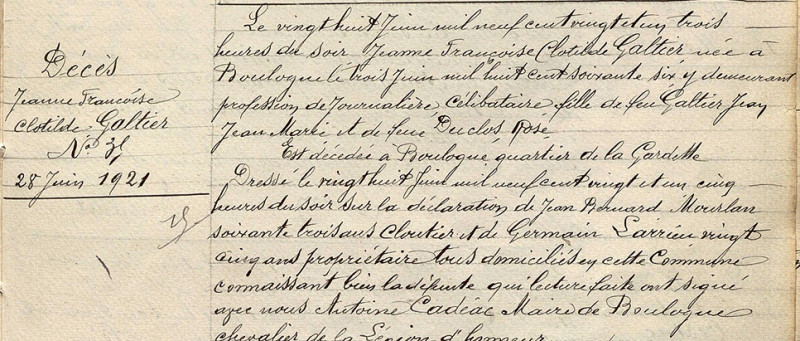 Décès
Jeanne Françoise
Clotilde Galtier
28 Juin 1921
Le vingt huit Juin mil neuf cent vingt et un trois
heures du soir Jeanne Françoise Clotilde Galtier née à
Boulogne le trois Juin mil huit cent soixante six y demeurant
profession de Journalière, célibataire fille de feu Galtier Jean
Jean Marie et de feue Duclos Rose
Est décédée à Boulogne quartier de la Gardette
Dressé le vingt huit Juin mil neuf cent vingt et un cinq
heures du soir sur la déclaration de Jean Bernard Mourlan
soixante trois ans Cloutier et de Germain Larrieu vingt
cinq ans propriétaire tous domiciliés en cette Commune
connaissant bien la défunte qui lecture faite ont signé
avec nous Antoine Cadéac Maire de Boulogne
chevalier de la Légion d'honneur